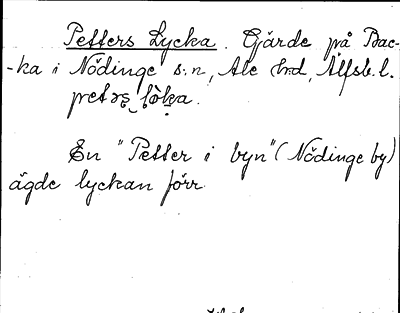 Petters Lycka. Gärde på Bac-
-ka i Nödinge s:n, Ale hrd, Älfsb. l.
En "Petter i byn" (Nödinge by)
ägde lyckan förr.